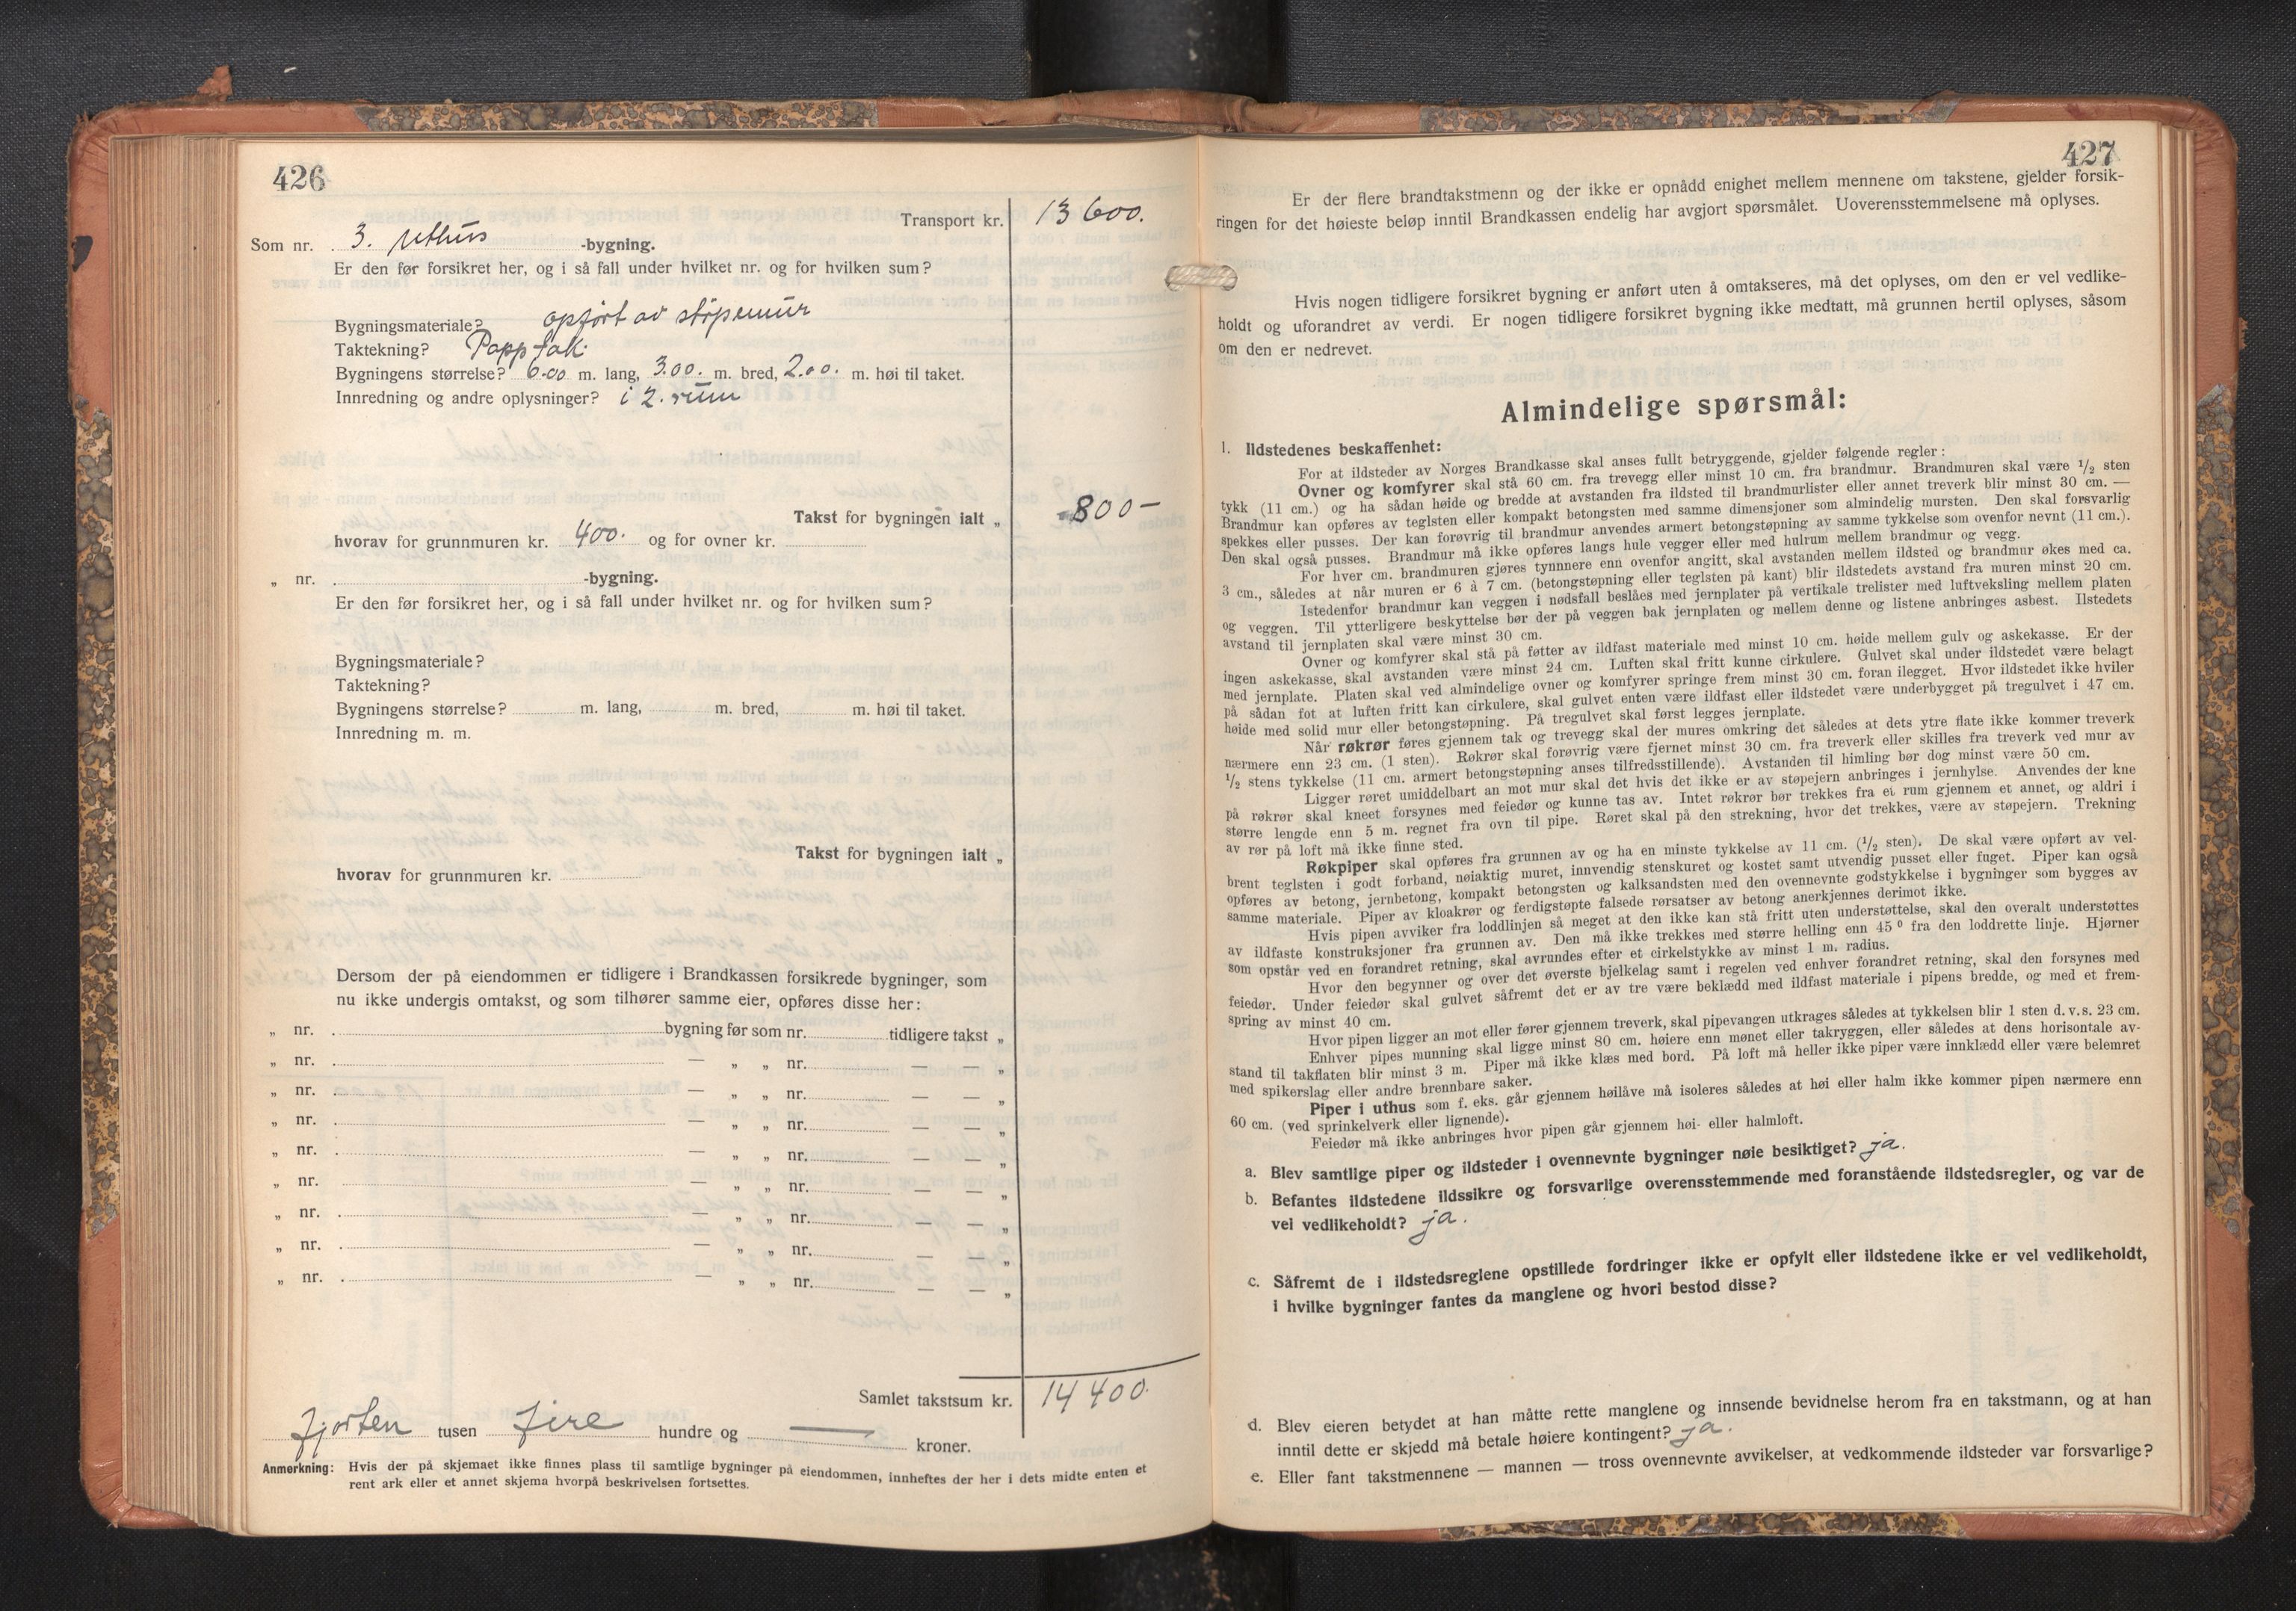 426
Transport kr. 13 600.
Som nr. 3. uthus -bygning.
Er den før forsikret her, og i så fall under hvilket nr. og for hvilken sum?
Bygningsmateriale? opført av støpemur
Taktekning? Papptak.
Bygningens størrelse? 6.00 m. lang, 3.00. m. bred, 2.00. m. høi til taket.
Innredning og andre oplysninger? i 2. rum
Takst for bygningen ialt „ 800-
hvorav for grunnmuren kr. 400. og for ovner kr.
„ nr. -bygning.
Er den før forsikret her, og i så fall under hvilket nr. og for hvilken sum?
Bygningsmateriale?
Taktekning?
Bygningens størrelse? m. lang, m. bred, m. høi til taket.
Innredning m. m.
Takst for bygningen ialt „
hvorav for grunnmuren kr.
Dersom der på eiendommen er tidligere i Brandkassen forsikrede bygninger, som
nu ikke undergis omtakst, og som tilhører samme eier, opføres disse her:
„ nr. bygning før som nr. tidligere takst „
„ nr. — „ „ nr. — — „
„ nr. — „ „ nr. — — „
„ nr. — „ „ nr. — — „
„ nr. — „ „ nr. — — „
„ nr. — „ „ nr. — — „
„ nr. — „ „ nr. — — „
„ nr. — „ „ nr. — — „
„ nr. — „ „ nr. — — „
Samlet takstsum kr. 14 400.
fjorten tusen fire hundre og — kroner.
Anmerkning: Hvis der på skjemaet ikke finnes plass til samtlige bygninger på eiendommen, innheftes der her i dets midte enten et
rent ark eller et annet skjema hvorpå beskrivelsen fortsettes.
427
Er der flere brandtakstmenn og der ikke er opnådd enighet mellem mennene om takstene, gjelder forsik-
ringen for det høieste beløp inntil Brandkassen endelig har avgjort spørsmålet. Uoverensstemmelsene må oplyses.
Hvis nogen tidligere forsikret bygning er anført uten å omtakseres, må det oplyses, om den er vel vedlike-
holdt og uforandret av verdi. Er nogen tidligere forsikret bygning ikke medtatt, må grunnen hertil oplyses, såsom
om den er nedrevet.
Almindelige spørsmål:
1. Ildstedenes beskaffenhet:
For at ildsteder av Norges Brandkasse skal anses fullt betryggende, gjelder følgende regler:
Ovner og komfyrer skal stå 60 cm. fra trevegg eller minst 10 cm. fra brandmur. Brandmuren skal være 1/2 sten
tykk (11 cm.) og ha sådan høide og bredde at avstanden fra ildsted til brandmurlister eller annet treverk blir minst 30 cm. —
Brandmur kan opføres av teglsten eller kompakt betongsten med samme dimensjoner som almindelig mursten. Den skal forsvarlig
spekkes eller pusses. Der kan forøvrig til brandmur anvendes armert betongstøpning av samme tykkelse som ovenfor nevnt (11 cm.).
Den skal også pusses. Brandmur må ikke opføres langs hule vegger eller med hulrum mellem brandmur og vegg.
For hver cm. brandmuren gjøres tynnnere enn ovenfor angitt, skal avstanden mellem ildsted og brandmur økes med ca.
3 cm., således at når muren er 6 à 7 cm. (betongstøpning eller teglsten på kant) blir ildstedets avstand fra muren minst 20 cm.
Istedenfor brandmur kan veggen i nødsfall beslåes med jernplater på vertikale trelister med luftveksling mellem platen
og veggen. Til ytterligere beskyttelse bør der på veggen bak jernplaten og mellem denne og listene anbringes asbest. Ilstedets
avstand til jernplaten skal være minst 30 cm.
Ovner og komfyrer skal stå på føtter av ildfast materiale med minst 10 cm. høide mellem gulv og askekasse. Er der
ingen askekasse, skal avstanden være minst 24 cm. Luften skal fritt kunne cirkulere. Gulvet skal under ildstedet være belagt
med jernplate. Platen skal ved almindelige ovner og komfyrer springe frem minst 30 cm. foran ilegget. Hvor ildstedet ikke hviler
på sådan fot at luften fritt kan cirkulere, skal gulvet enten være ildfast eller ildstedet være underbygget på tregulvet i 47 cm.
høide med solid mur eller betongstøpning. På tregulvet skal først legges jernplate.
Når røkrør føres gjennem tak og trevegg skal der mures omkring det således at dets ytre flate ikke kommer treverk
nærmere enn 23 cm. (1 sten). Røkrør skal forøvrig være fjernet minst 30 cm. fra treverk eller skilles fra treverk ved mur av
1/2 stens tykkelse (11 cm. armert betongstøpning anses tilfredsstillende). Avstanden til himling bør dog minst være 50 cm.
Ligger røret umiddelbart an mot mur skal det hvis det ikke er av støpejern anbringes i jernhylse. Anvendes der kne
på røkrør skal kneet forsynes med feiedør og kunne tas av. Intet røkrør bør trekkes fra et rum gjennem et annet, og aldri i
større lengde enn 5 m. regnet fra ovn til pipe. Røret skal på den strekning, hvor det trekkes, være av støpejern. Trekning
av rør på loft må ikke finne sted.
Røkpiper skal opføres fra grunnen av og ha en minste tykkelse av 11 cm. (1/2 sten). De skal være opført av vel-
brent teglsten i godt forband, nøiaktig muret, innvendig stenskuret og kostet samt utvendig pusset eller fuget. Piper kan også
opføres av betong, jernbetong, kompakt betongsten og kalksandsten med den ovennevnte godstykkelse i bygninger som bygges av
samme materiale. Piper av kloakrør og ferdigstøpte falsede rørsatser av betong anerkjennes derimot ikke.
Hvis pipen avviker fra loddlinjen så meget at den ikke kan stå fritt uten understøttelse, skal den overalt understøttes
av ildfaste konstruksjoner fra grunnen av. Den må ikke trekkes med større helling enn 45° fra den loddrette linje. Hjørner
som opstår ved en forandret retning, skal avrundes efter et cirkelstykke av minst 1 m. radius.
Hvor den begynner og over det øverste bjelkelag samt i regelen ved enhver forandret retning, skal den forsynes med
feiedør. Under feiedør skal gulvet såfremt det er av tre være beklædd med ildfast materiale i pipens bredde, og med et frem-
spring av minst 40 cm.
Hvor pipen ligger an mot eller fører gjennem treverk, skal pipevangen utkrages således at tykkelsen blir 1 sten d.v.s. 23 cm.
Enhver pipes munning skal ligge minst 80 cm. høiere enn mønet eller takryggen, eller således at dens horisontale av-
stand til takflaten blir minst 3 m. Piper må ikke klæs med bord. På loft må heller ikke piper være innklædd eller være belemret
med spikerslag eller andre brennbare saker.
Piper i uthus som f. eks. går gjennem høilåve må isoleres således at høi eller halm ikke kommer pipen nærmere enn
60 cm. (ved sprinkelverk eller lignende).
Feiedør må ikke anbringes hvor pipen går gjennem høi- eller halmloft.
a. Blev samtlige piper og ildsteder i ovennevnte bygninger nøie besiktiget? ja.
b. Befantes ildstedene ildssikre og forsvarlige overensstemmende med foranstående ildstedsregler, og var de
vel vedlikeholdt? ja.
c. Såfremt de i ildstedsreglene opstillede fordringer ikke er opfylt eller ildstedene ikke er vel vedlikeholdt,
i hvilke bygninger fantes da manglene og hvori bestod disse?
d. Blev eieren betydet at han måtte rette manglene og innsende bevidnelse herom fra en takstmann, og at han
inntil dette er skjedd må betale høiere kontingent? ja.
e. Eller fant takstmennene — mannen — tross ovennevnte avvikelser, at vedkommende ildsteder var forsvarlige?